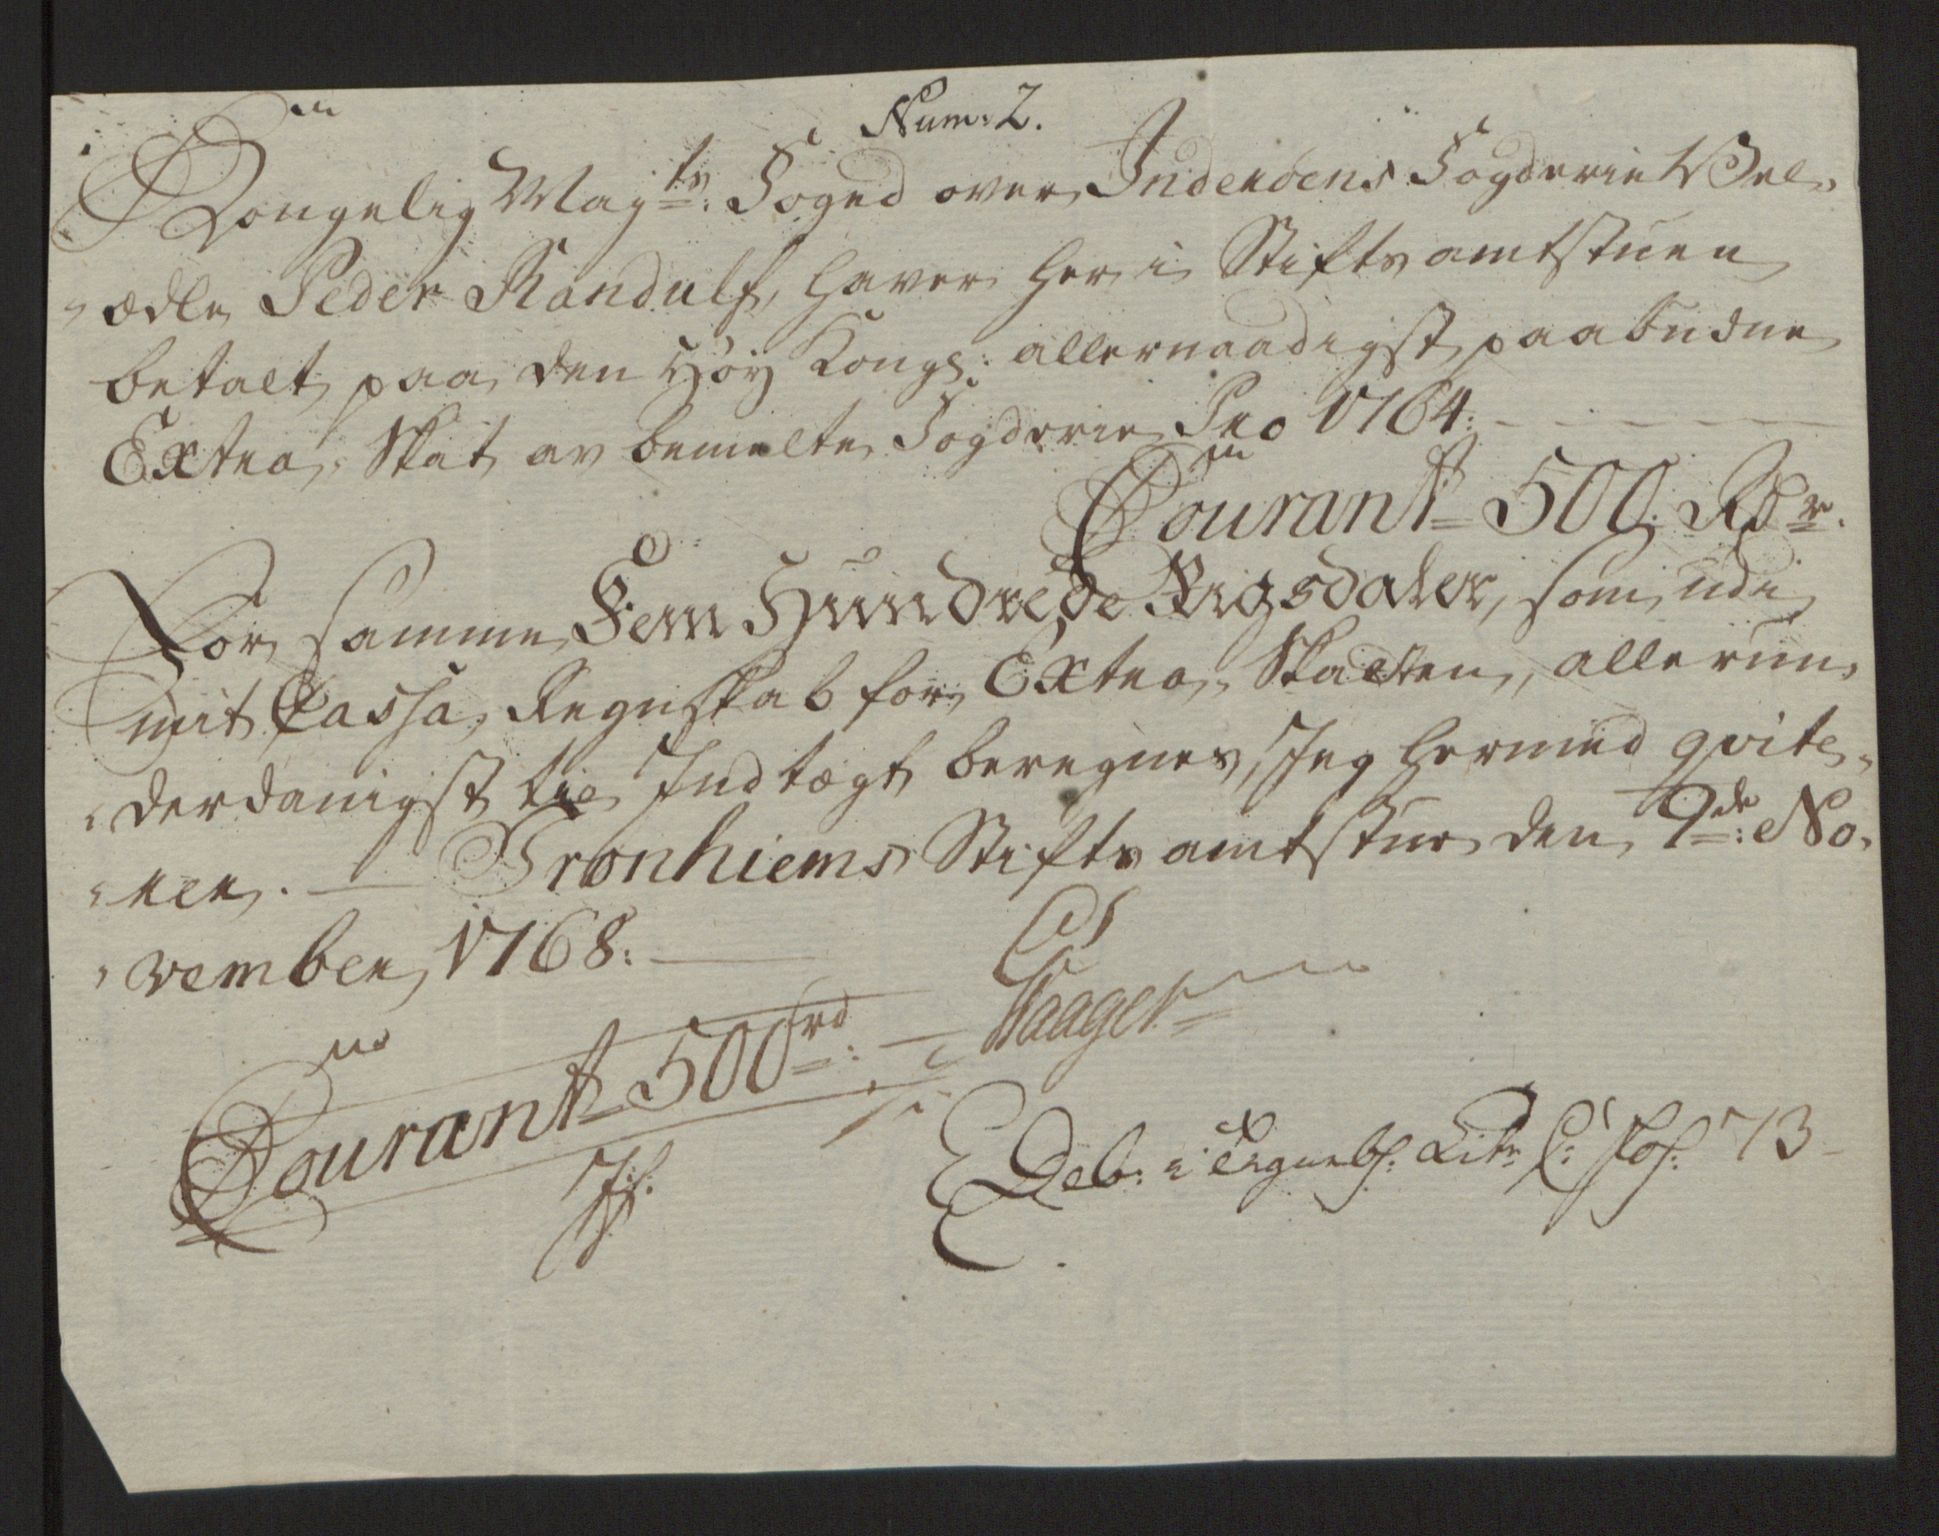 Num: 2.
Kongelig May:ts Foged over Inderöens Fogderie Vel-
ædle Peder Randulf, haver her i Stiftsamtstuen
betalt paa den höy Kongl: allernaadigst paabudne
Extra Skat av bemelte Fogderie Pro 1764.
Courant 500 Rdr.
For samme Fem Hundrede Rigsdaler, som udi
mit Cassa Regnskab for Extra Skatten, allerun-
derdanigst til Indtægt beregnes, Jeg hermed qvite-
rer. Tronhiems Stiftsamtstue den 9de No-
vember 1768.
Haager
Courant 500rd
Deb: i Litr C: fol: 73